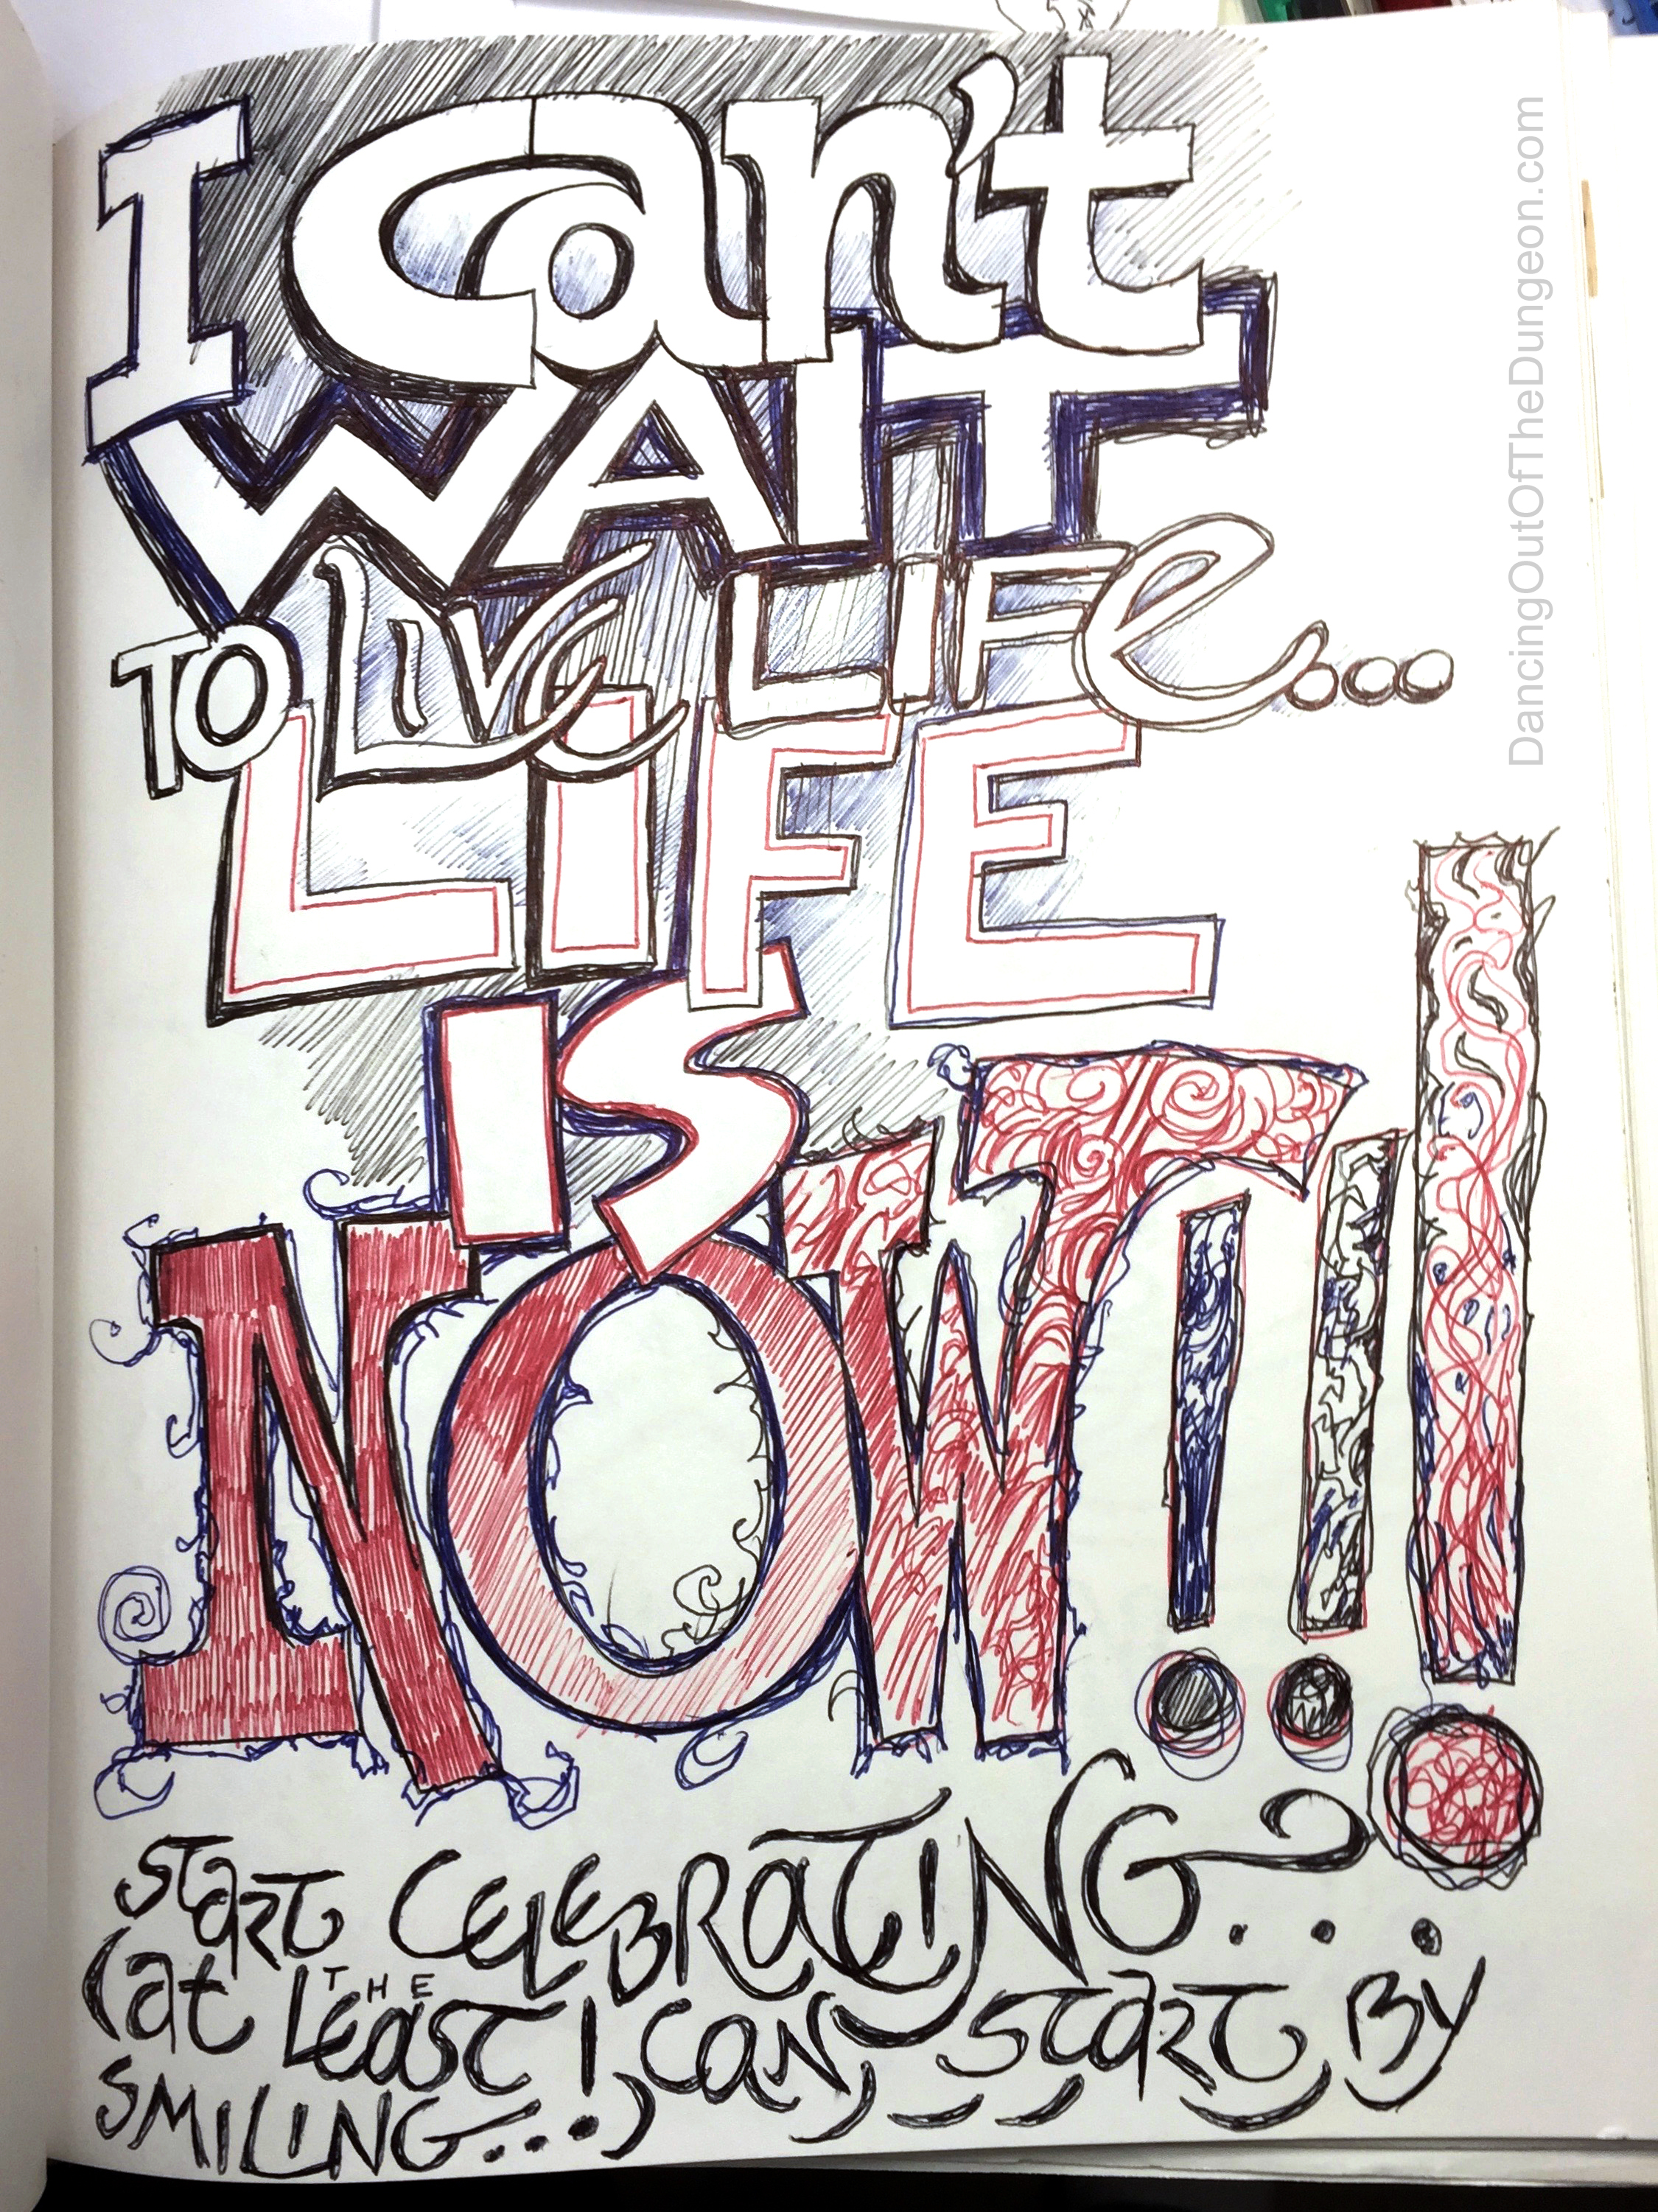 I Can't
WAIT
TO LIVe LIFe...
LIFE
IS
NOW!!!
START CELEBRATING...
(at THE Least I can START BY
SMILING...)
DancingOutOfTheDungeon.com